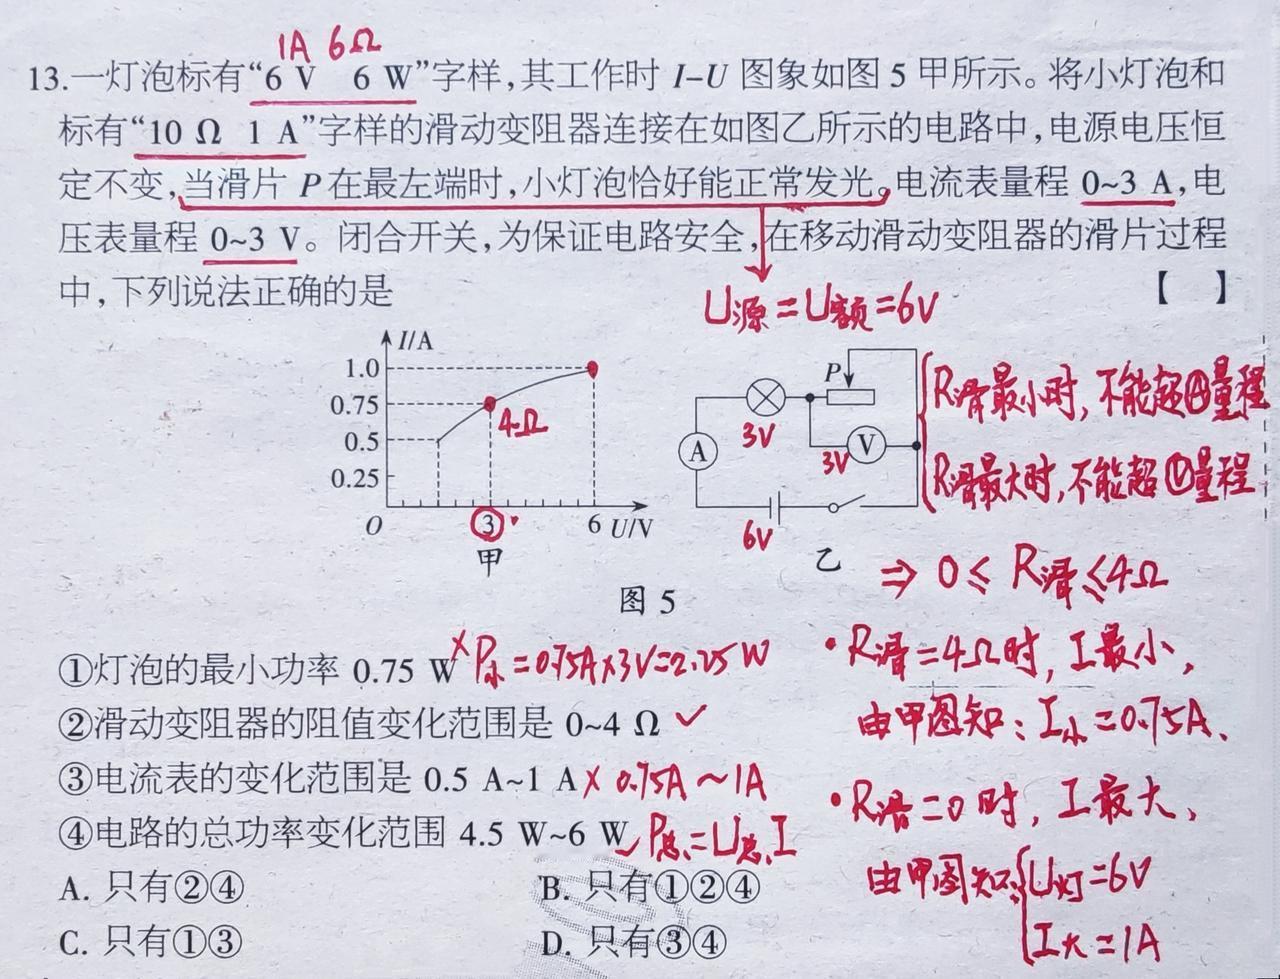 1A 6Ω
13.一灯泡标有“6 V 6 W”字样,其工作时 I-U 图象如图 5 甲所示。将小灯泡和
标有“10 Ω 1 A”字样的滑动变阻器连接在如图乙所示的电路中,电源电压恒
定不变,当滑片 P 在最左端时,小灯泡恰好能正常发光。电流表量程 0~3 A,电
压表量程 0~3 V。闭合开关,为保证电路安全,在移动滑动变阻器的滑片过程
中,下列说法正确的是 【 】
U源=U额=6V
I/A
1.0
0.75
0.5
0.25
O
3
6 U/V
4Ω
甲
P
A
V
3V
3V
6V
乙
图 5
R滑最小时,不能超Ⓐ量程
R滑最大时,不能超Ⓥ量程
⇒ 0≤R滑≤4Ω
①灯泡的最小功率 0.75 W × P小=0.75A×3V=2.25W
②滑动变阻器的阻值变化范围是 0~4 Ω ✓
③电流表的变化范围是 0.5 A~1 A × 0.75A~1A
④电路的总功率变化范围 4.5 W~6 W ✓ P总=U总I
A. 只有②④ B. 只有①②④
C. 只有①③ D. 只有③④
·R滑=4Ω时,I最小,
由甲图知:I小=0.75A、
·R滑=0时,I最大,
由甲图知:U灯=6V
I大=1A